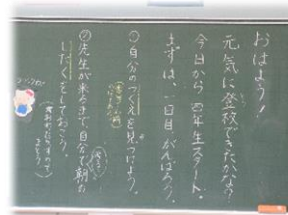 おはよう！
元気に登校できたかな？
今日から 四年生スタート。
まずは、一日目 がんばろう。
①自分のつくえを見つけよう。
②先生が来るまで自分で朝の
したくをしておこう。